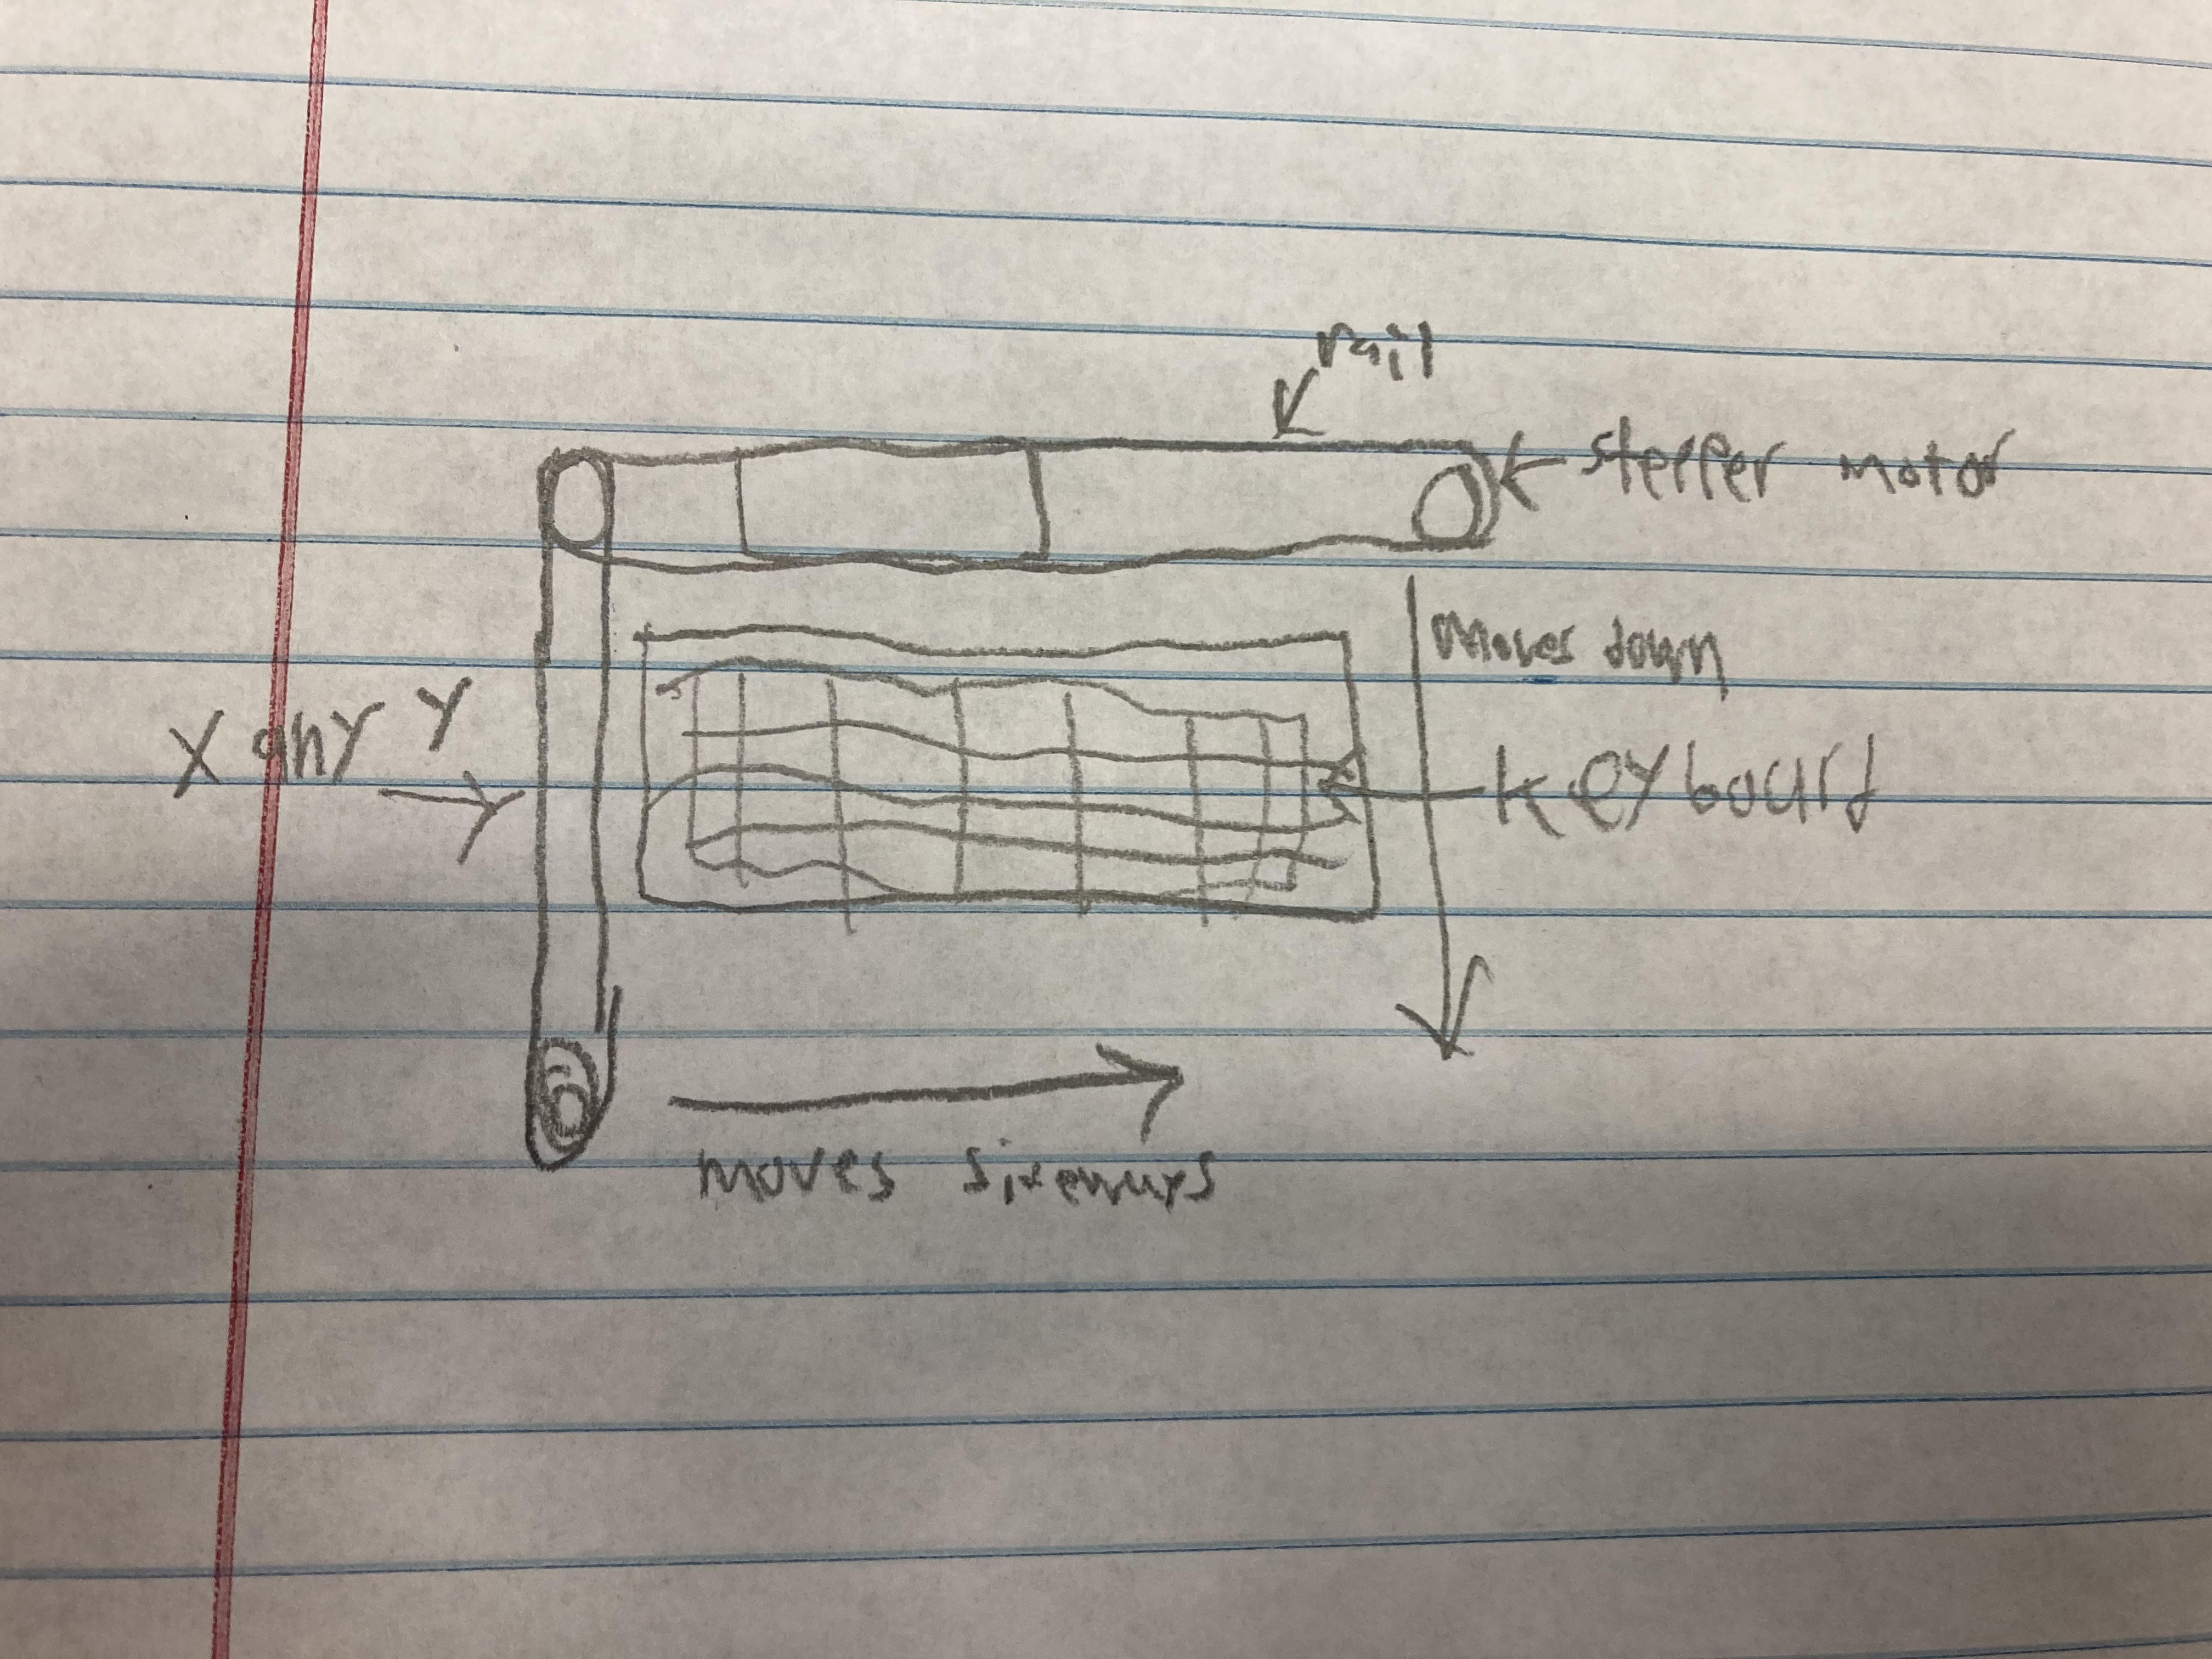 rail
stepper motor
X any Y
moves down
keyboard
moves sideways